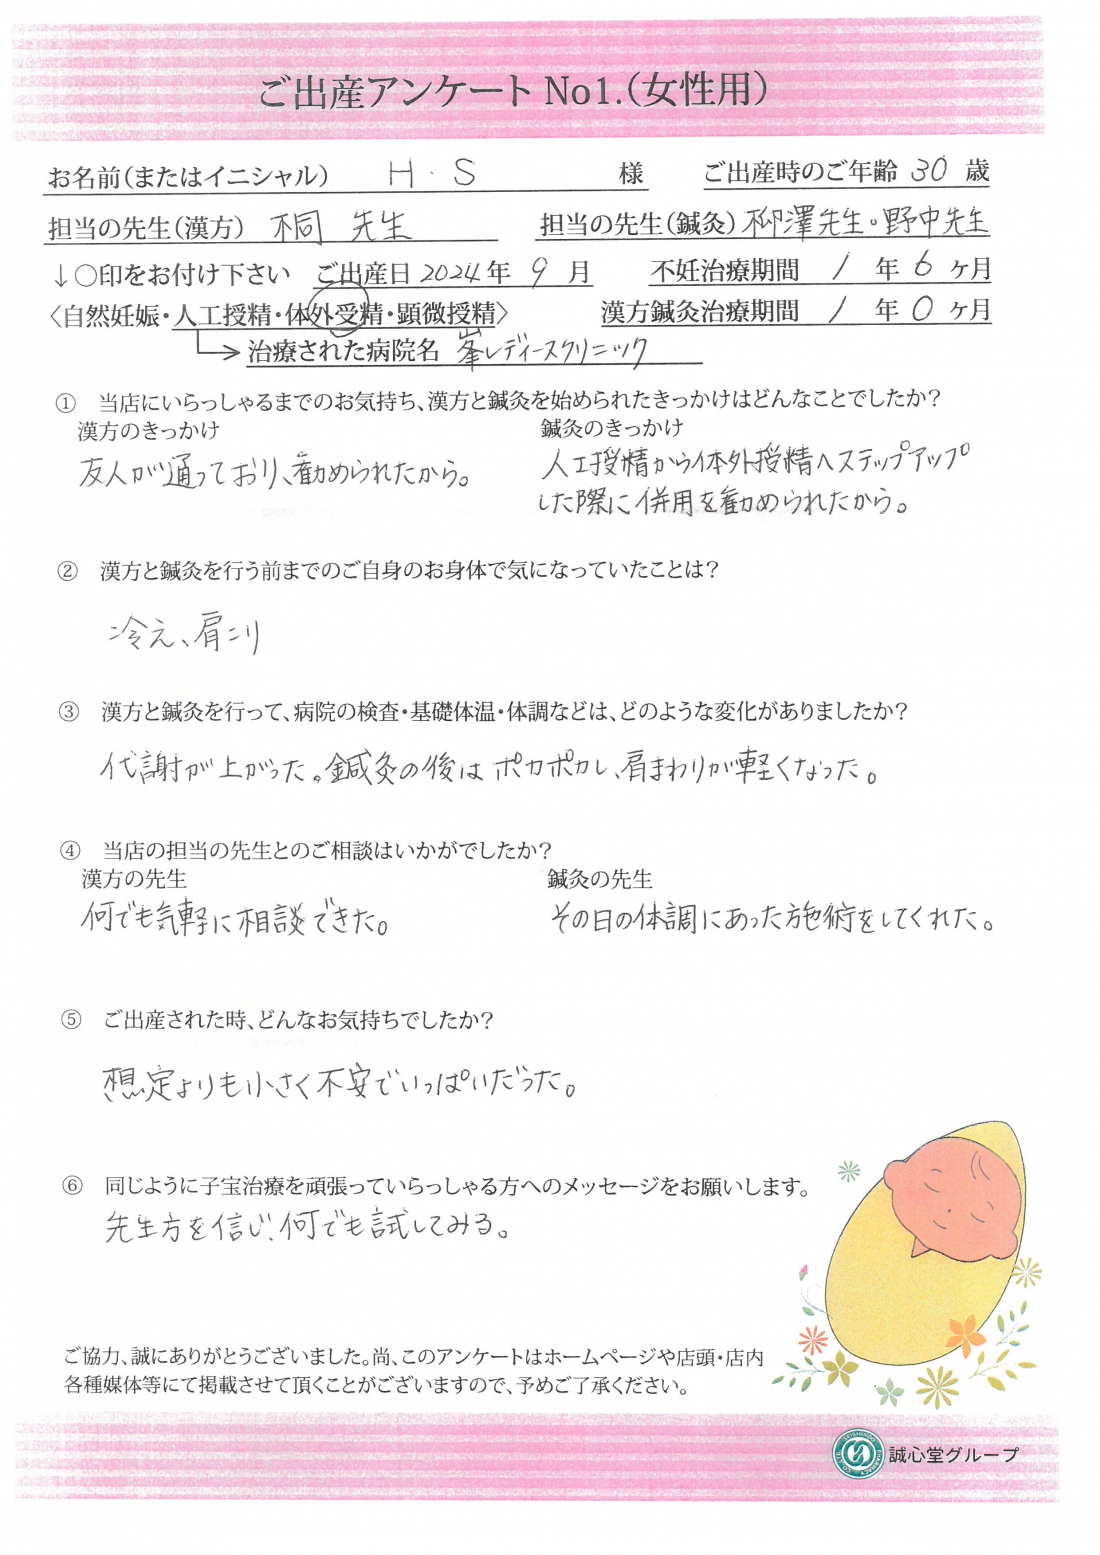 ご出産アンケート No1.(女性用)
お名前(またはイニシャル) H・S 様 ご出産時のご年齢 30 歳
担当の先生(漢方) 不同 先生 担当の先生(鍼灸) 柳澤先生。野中先生
↓○印をお付け下さい ご出産日 2024年 9 月 不妊治療期間 1 年 6 ヶ月
〈自然妊娠・人工授精・体外受精・顕微授精〉 漢方鍼灸治療期間 1 年 0 ヶ月
治療された病院名 峯レディースクリニック
① 当店にいらっしゃるまでのお気持ち、漢方と鍼灸を始められたきっかけはどんなことでしたか?
漢方のきっかけ 鍼灸のきっかけ
友人が通っており、勧められたから。 人工授精から体外授精へステップアップ
した際に併用を勧められたから。
② 漢方と鍼灸を行う前までのご自身のお身体で気になっていたことは?
冷え、肩こり
③ 漢方と鍼灸を行って、病院の検査・基礎体温・体調などは、どのような変化がありましたか?
代謝が上がった。鍼灸の後はポカポカし、肩まわりが軽くなった。
④ 当店の担当の先生とのご相談はいかがでしたか?
漢方の先生 鍼灸の先生
何でも気軽に相談できた。 その日の体調にあった施術をしてくれた。
⑤ ご出産された時、どんなお気持ちでしたか?
想定よりも小さく不安でいっぱいだった。
⑥ 同じように子宝治療を頑張っていらっしゃる方へのメッセージをお願いします。
先生方を信じ、何でも試してみる。
ご協力、誠にありがとうございました。尚、このアンケートはホームページや店頭・店内
各種媒体等にて掲載させて頂くことがございますので、予めご了承ください。
誠心堂グループ